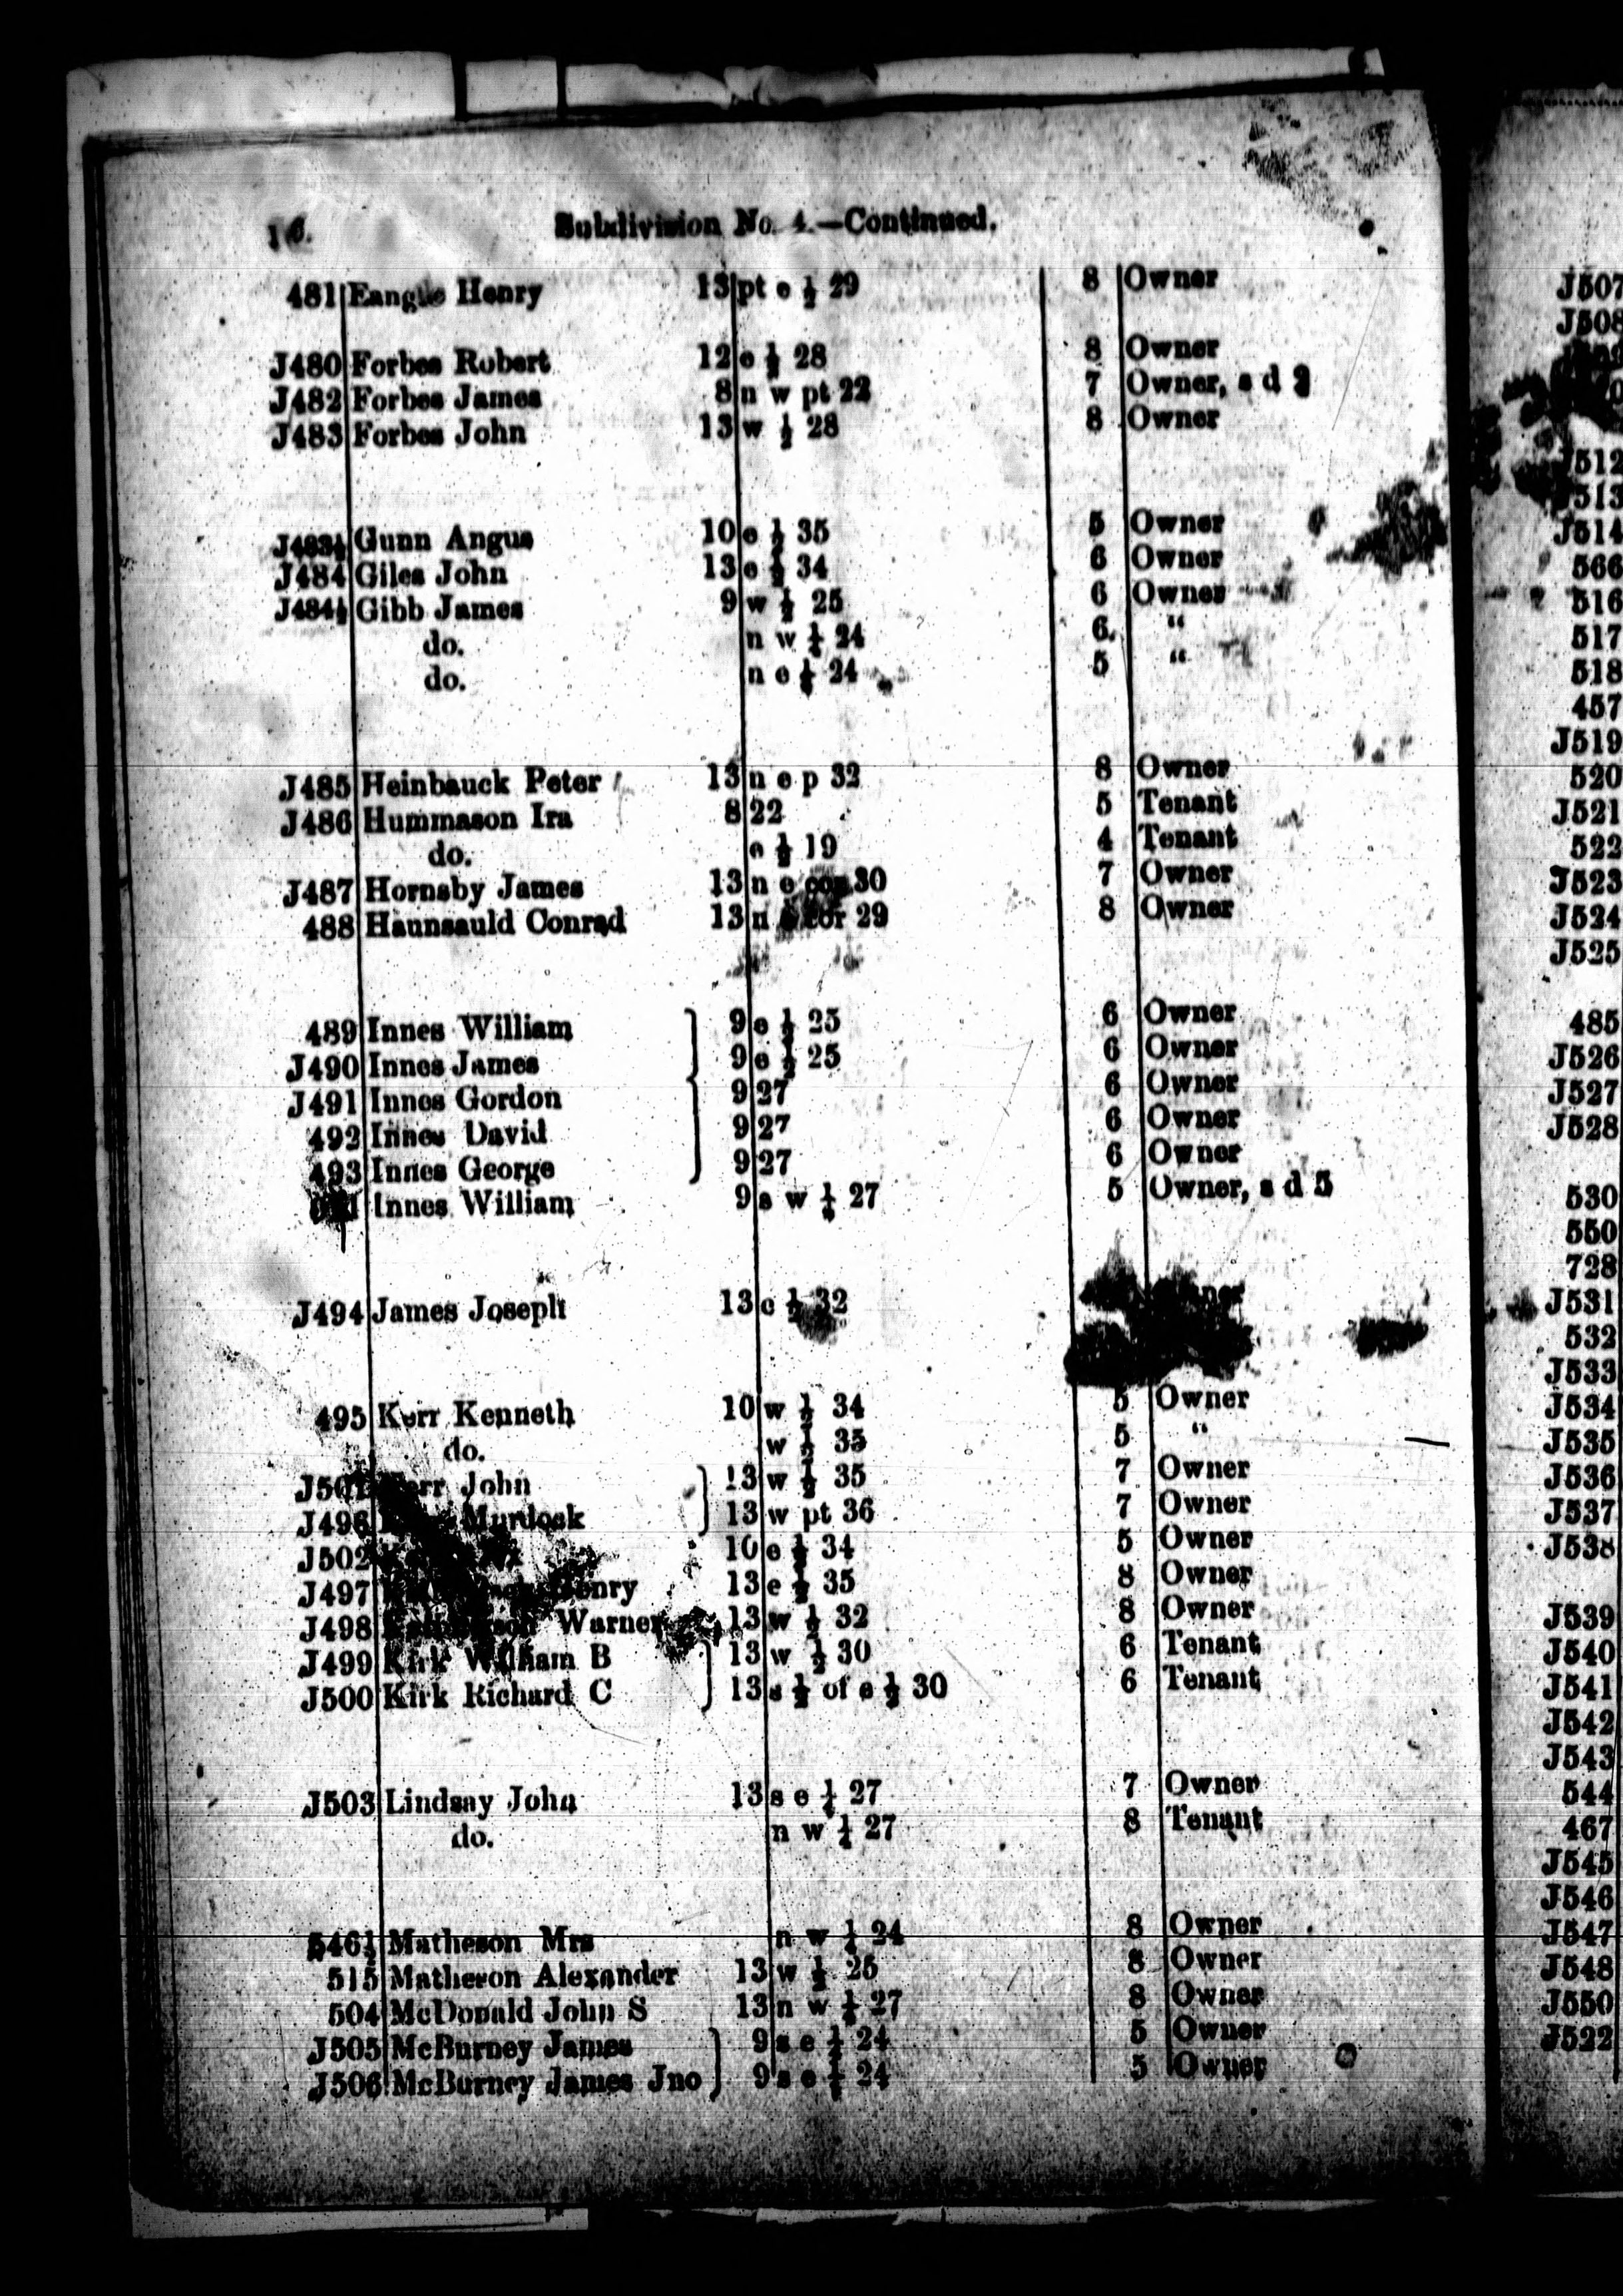 16.
Subdivision No. 4.—Continued.
481 Eangue Henry 13 pt e ½ 29 8 Owner
J480 Forbes Robert 12 e ½ 28 8 Owner
J482 Forbes James 8 n w pt 22 7 Owner, s d
J483 Forbes John 13 w ½ 28 8 Owner
J483½ Gunn Angus 10 e ½ 35 5 Owner
J484 Giles John 13 e ½ 34 6 Owner
J484½ Gibb James 9 w ½ 25 6 Owner
do. n w ¼ 24 6. "
do. n e ¼ 24 5 "
J485 Heinbauck Peter 13 n e p 32 8 Owner
J486 Hummason Ira 8 22 5 Tenant
do. e ½ 19 4 Tenant
J487 Hornsby James 13 n e cor 30 7 Owner
488 Haunsauld Conrad 13 n cor 29 8 Owner
489 Innes William 9 e ½ 25 6 Owner
J490 Innes James 9 e ½ 25 6 Owner
J491 Innes Gordon 9 27 6 Owner
492 Innes David 9 27 6 Owner
493 Innes George 9 27 6 Owner
Innes William 9 s w ¼ 27 5 Owner, s d 5
J494 James Joseph 13 e ½ 32
495 Kerr Kenneth 10 w ½ 34 5 Owner
do. w ½ 35 5 "
J501 Kerr John 13 w ½ 35 7 Owner
J496 Murdock 13 w pt 36 7 Owner
J502 10 e ½ 34 5 Owner
J497 Henry 13 e ½ 35 8 Owner
J498 Warner 13 w ½ 32 8 Owner
J499 Kirk William B 13 w ½ 30 6 Tenant
J500 Kirk Richard C 13 s ½ of e ½ 30 6 Tenant
J503 Lindsay John 13 s e ¼ 27 7 Owner
do. n w ¼ 27 8 Tenant
546½ Matheson Mrs n w ¼ 24 8 Owner
515 Matheson Alexander 13 w ½ 25 8 Owner
504 McDonald John S 13 n w ¼ 27 8 Owner
J505 McBurney James 9 s e ¼ 24 5 Owner
J506 McBurney James Jno 9 s e ¼ 24 5 Owner
J507
J508
J512
J513
J514
566
516
517
518
457
J519
520
J521
522
J523
J524
J525
485
J526
J527
J528
530
550
728
J531
532
J533
J534
J535
J536
J537
J538
J539
J540
J541
J542
J543
544
467
J545
J546
J547
J548
J550
J522